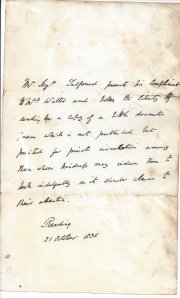 Mr Serjt Talfourd presents his Compliments
to Mrs Walter and takes the liberty of
sending her a copy of a little dramatic
poem which is not published but
printed for private circulation among
those whose kindness may induce them to
look indulgently on its slender claims to
their attention.
Reading
21 October 1835